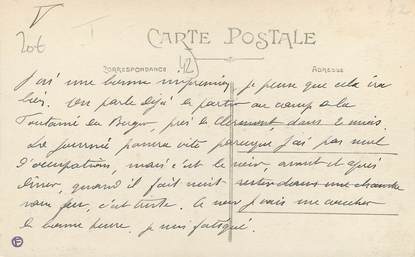 V
206
CARTE POSTALE
CORRESPONDANCE
42
ADRESSE
J'ai une bonne impression, je pense que cela ira
bien. On parle déjà de partir au camp de la
Fontaine du Berger, près de Clermont, dans le mois.
La journée passera vite parceque j'ai pas mal
d'occupations, mais c'est le soir, avant et après
dîner, quand il fait nuit rester dans une chambre
sans feu, c'est triste. Ce soir je vais me coucher
de bonne heure, je suis fatigué.